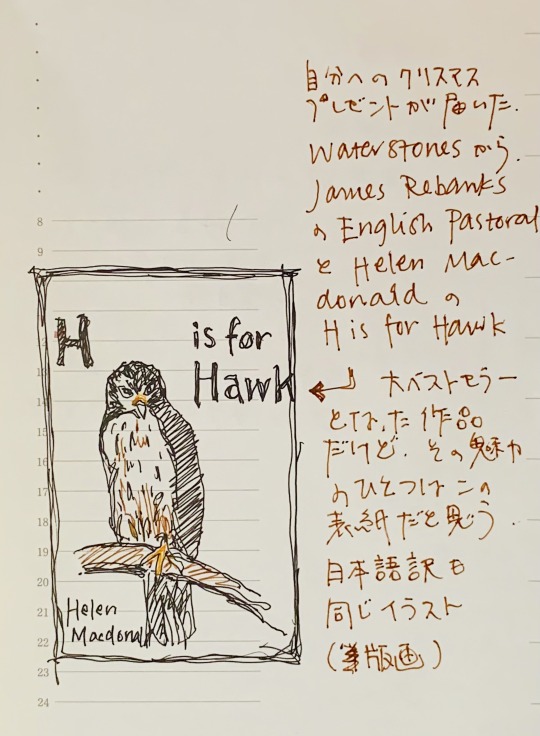 自分へのクリスマス
プレゼントが届いた.
Waterstonesから.
James Rebanks
の English Pastoral
と Helen Mac-
donald の
H is for Hawk
大ベストセラー
となった作品
だけど、その魅力
のひとつはこの
表紙だと思う.
日本語訳も
同じイラスト
(版画)
8
9
H is for
Hawk
15
16
17
18
19
20
21
22
23
24
Helen
Macdonald